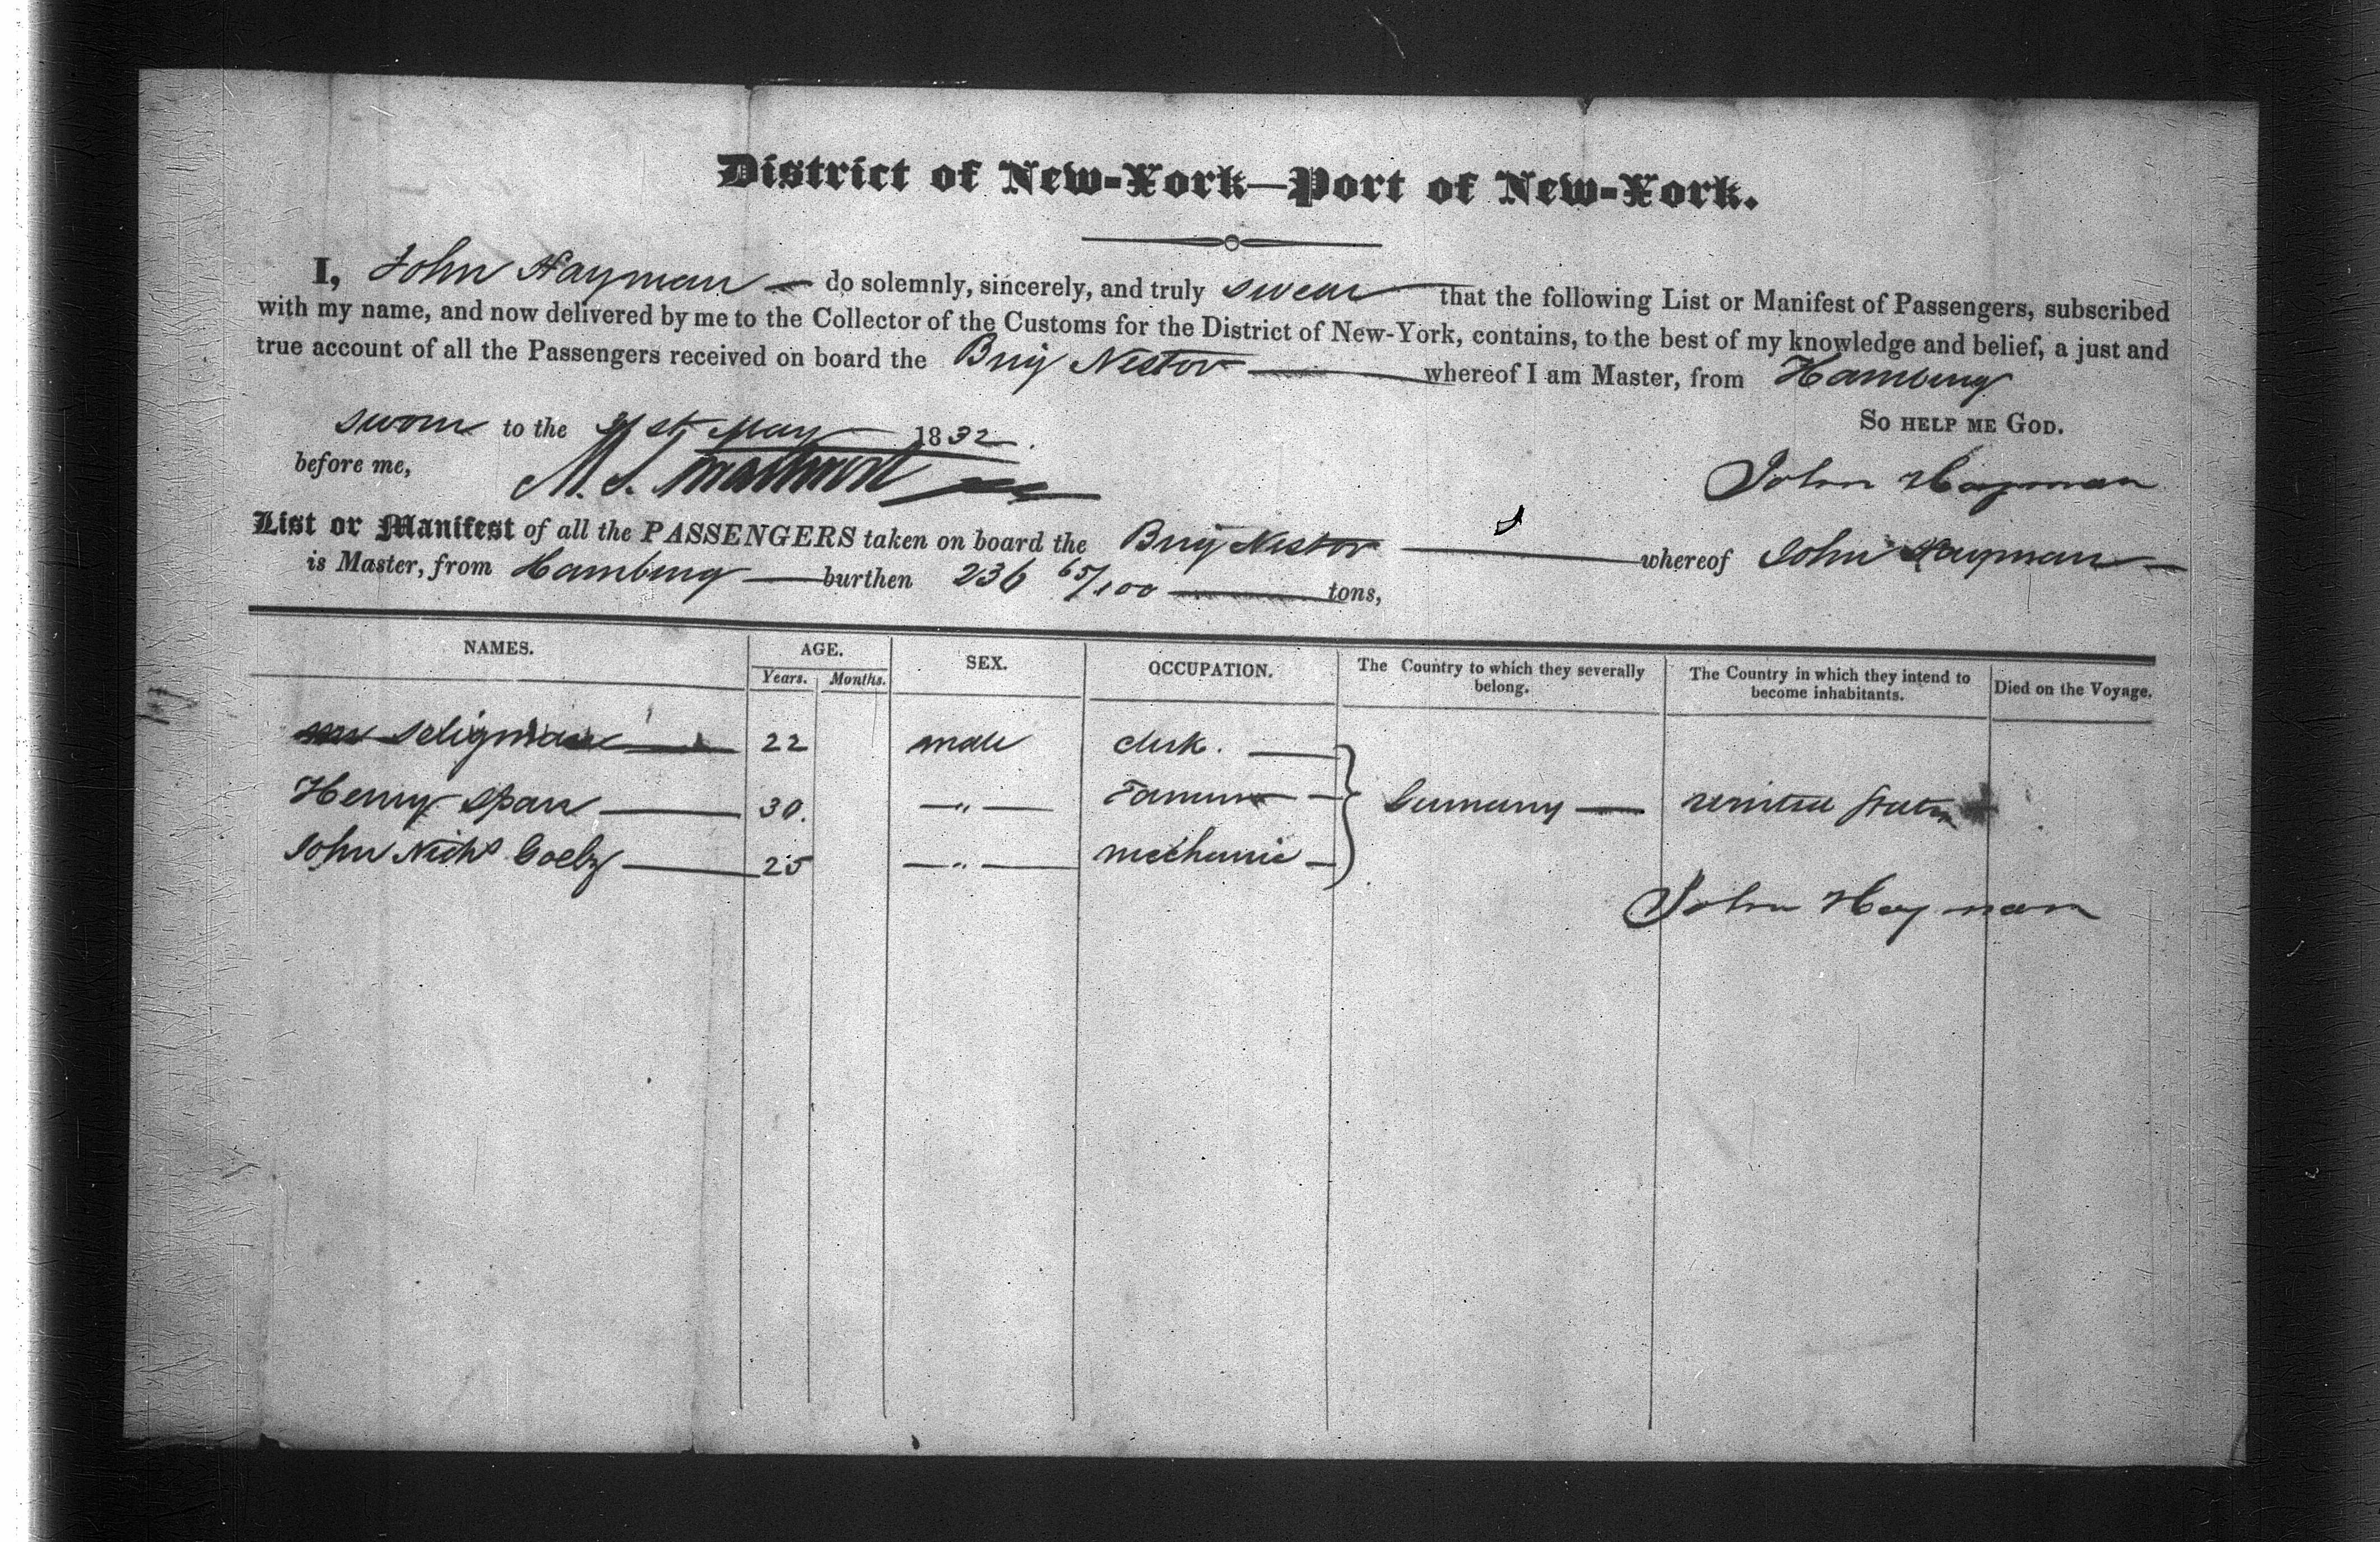 District of New-York—Port of New-York.
I, John Hayman — do solemnly, sincerely, and truly swear that the following List or Manifest of Passengers, subscribed
with my name, and now delivered by me to the Collector of the Customs for the District of New-York, contains, to the best of my knowledge and belief, a just and
true account of all the Passengers received on board the Brig Nestor — whereof I am Master, from Hamburg
So help me God.
sworn to the 31st May 1832.
before me,
John Hayman
List or Manifest of all the PASSENGERS taken on board the Brig Nestor — whereof John Hayman —
is Master, from Hamburg — burthen 236 65/100 — tons,
NAMES. AGE. SEX. OCCUPATION. The Country to which they severally belong. The Country in which they intend to become inhabitants. Died on the Voyage.
Years. Months.
Seligman — 22 male clerk. —
Henry Spar — 30. — " — Farmer — Germany — United States
John Nichs — 25 — " — mechanic —
John Hayman